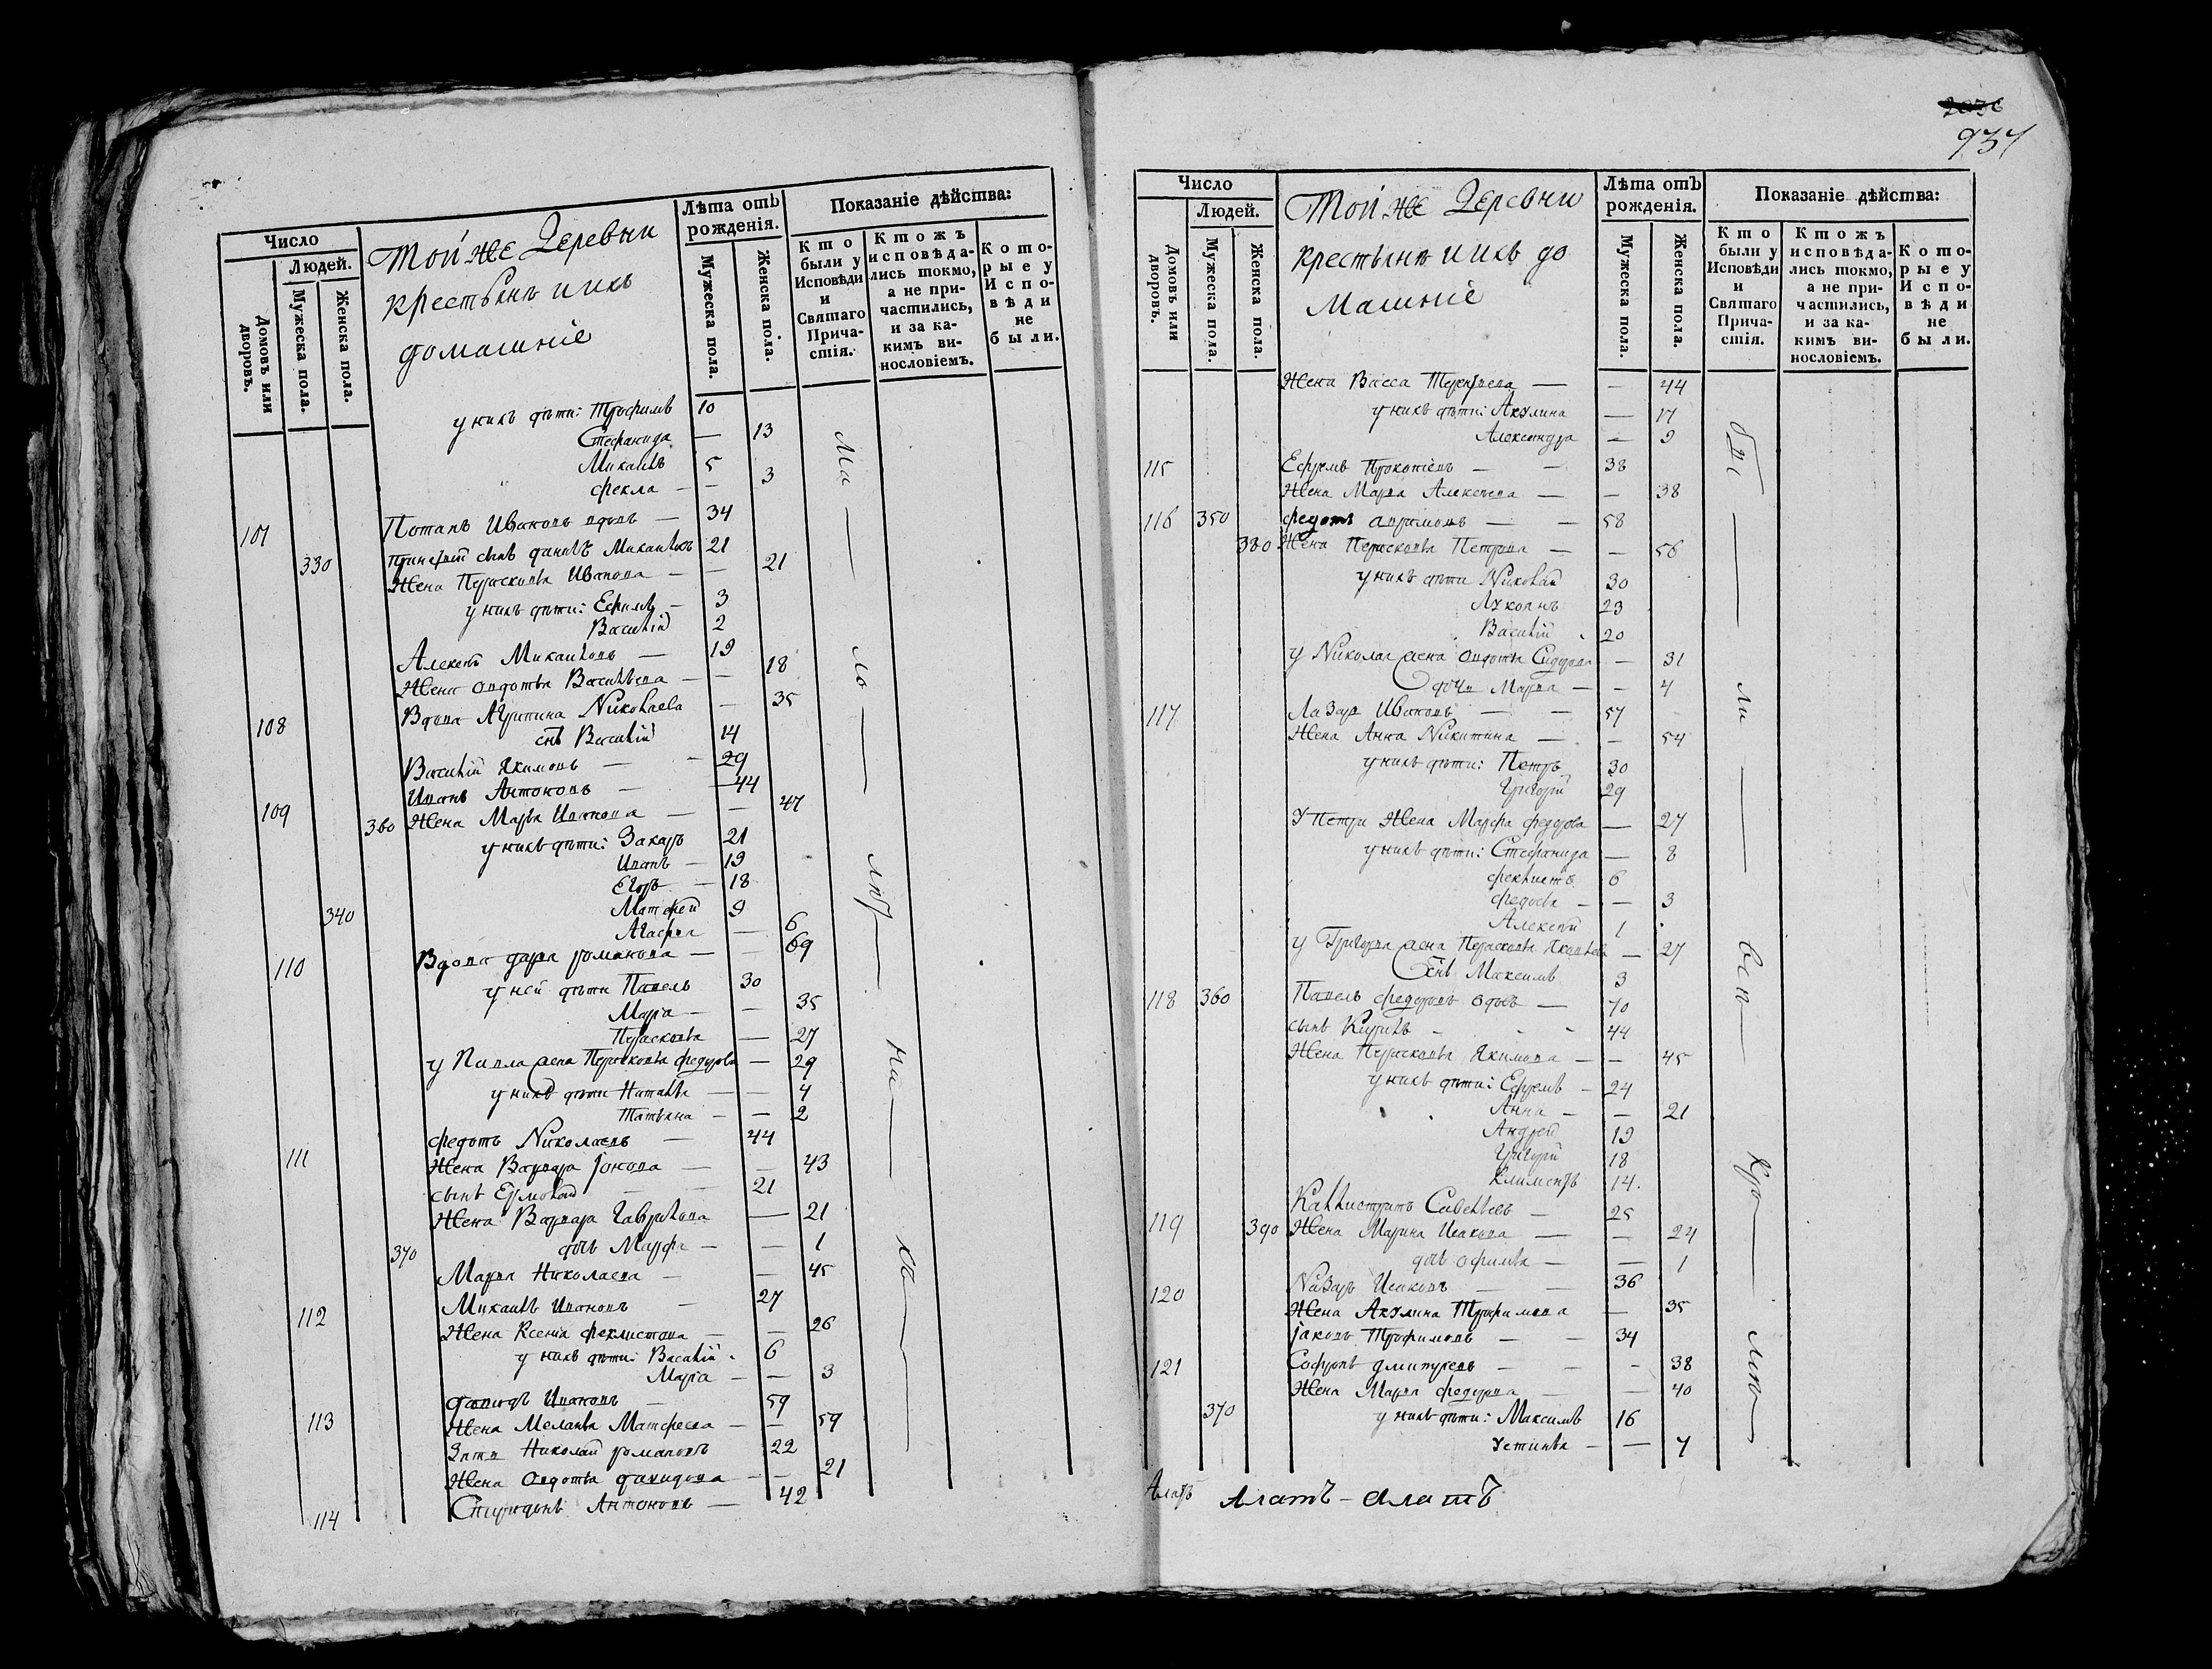 Число
Людей.
Домовъ или дворовъ.
Мужеска пола.
Женска пола.
Той же Деревни
крестьянъ и ихъ
домашніе
Лѣта отъ рожденія.
Мужеска пола.
Женска пола.
Показаніе дѣйства:
Кто были у Исповѣди и Святаго Причастія.
Ктожъ исповѣдались токмо, а не причастились, и за какимъ винословіемъ.
Которые у Исповѣди не были.
у нихъ дѣти: Трофимъ 10
Стефанида — 13
Михаилъ 5
Фекла — — 3
107 Потапъ Ивановъ вдовъ — 34
330 сынъ Данилъ Михаиловъ 21
Жена Персковья Иванова — — 21
у нихъ дѣти: Ефимъ — 3
Василій 2
Алексѣй Михаиловъ — 19
Жена Овдотья Васильева — — 18
108 Вдова Агрипина Николаева — 35
снъ Василій 14
Василій Якимовъ — — 29
109 Иванъ Антоновъ — — 44
360 Жена Марья Иванова — — 47
у нихъ дѣти: Захаръ 21
Иванъ — 19
Егоръ — 18
340 Матфей 9
Агафья — 6
110 Вдова Дарья Романова — — 69
у ней дѣти Павелъ 30
Марія — — 35
Персковья — 27
у Павла жена Персковья Федорова — 29
у нихъ дѣти Наталья — — 4
Татьяна — — 2
111 Федотъ Николаевъ — 44
Жена Варвара Іонова — — 43
сынъ Ермолай — — 21
Жена Варвара Гаврилова — 21
370 дочь Марфа — — 1
Марья Николаева — — 45
112 Михаилъ Ивановъ — 27
Жена Ксенія Феклистова — — 26
у нихъ дѣти: Василій 6
Марія — — 3
113 Давидъ Ивановъ — 59
Жена Меланья Матфеева — — 59
Зять Николай Романовъ 22
Жена Овдотья Давидова — — 21
114 Спиридонъ Антоновъ — 42
2036
937
Число
Людей.
Домовъ или дворовъ.
Мужеска пола.
Женска пола.
Той же Деревни
крестьянъ и ихъ до
машніе
Лѣта отъ рожденія.
Мужеска пола.
Женска пола.
Показаніе дѣйства:
Кто были у Исповѣди и Святаго Причастія.
Ктожъ исповѣдались токмо, а не причастились, и за какимъ винословіемъ.
Которые у Исповѣди не были.
Жена Васса Терентьева — — 44
у нихъ дѣти: Акулина — 17
Александра — 9
115 Ефремъ Прокопіевъ — — 38
Жена Марья Алексѣева — — 38
116 350 Федотъ — — 58
380 Жена Персковья Петрова — — 56
у нихъ дѣти Николай 30
Лукоянъ 23
Василій 20
у Николая жена Овдотья Сидорова — 31
дочь Марья — — 4
117 Лазарь Ивановъ — — 57
Жена Анна Никитина — — 54
у нихъ дѣти: Петръ 30
Григорій 29
У Петра Жена Марфа Федорова — 27
у нихъ дѣти: Стефанида — 8
Феклистъ 6
Федосья — — 3
Алексѣй 1
у Григорья жена Персковья Яковлева — 27
снъ Максимъ 3
118 360 Павелъ Федоровъ вдовъ — 70
сынъ Кирилъ — — — 44
Жена Персковья Якимова — — 45
у нихъ дѣти: Ефремъ — 24
Анна — — 21
Андрей 19
Григорій 18
Климентъ 14.
119 Каллистратъ Савельевъ — 25
390 Жена Марина Исакова — — 24
дочь Офимья — — 1
120 Назаръ Исаковъ — — 36
Жена Акулина Трофимова — 35
Іаковъ Трофимовъ — — 34
121 Софронъ Дмитреевъ — — — 38
Жена Марья Федорова — — 40
370 у нихъ дѣти: Максимъ 16
Устинья — — 7